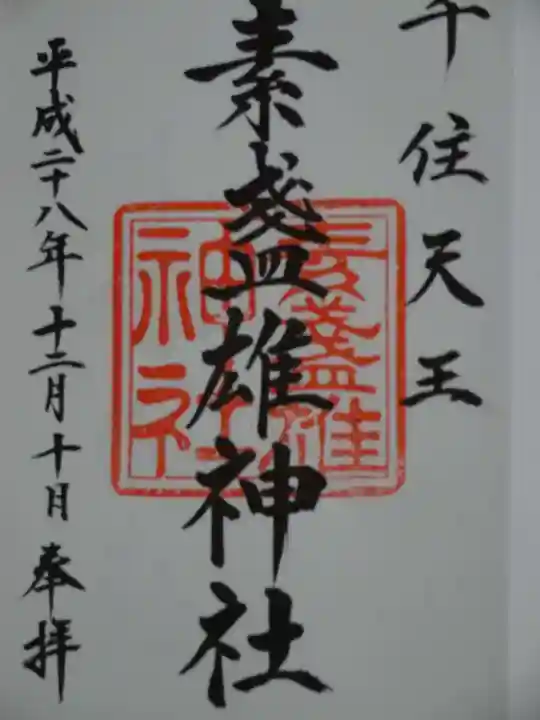 千住天王
素盞雄神社
素盞雄
神社
平成二十八年十二月十日奉拝